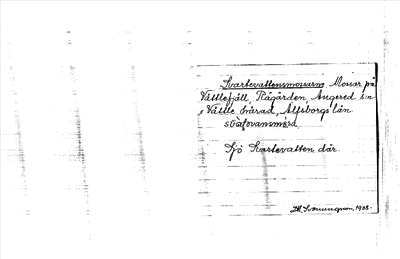 Svartevattensmossarna, Mossar på
Vättlefjäll, Rågården, Angered sn
Vättle härad, Älfsborgs län

Sjö Svartevatten, där.
1928.